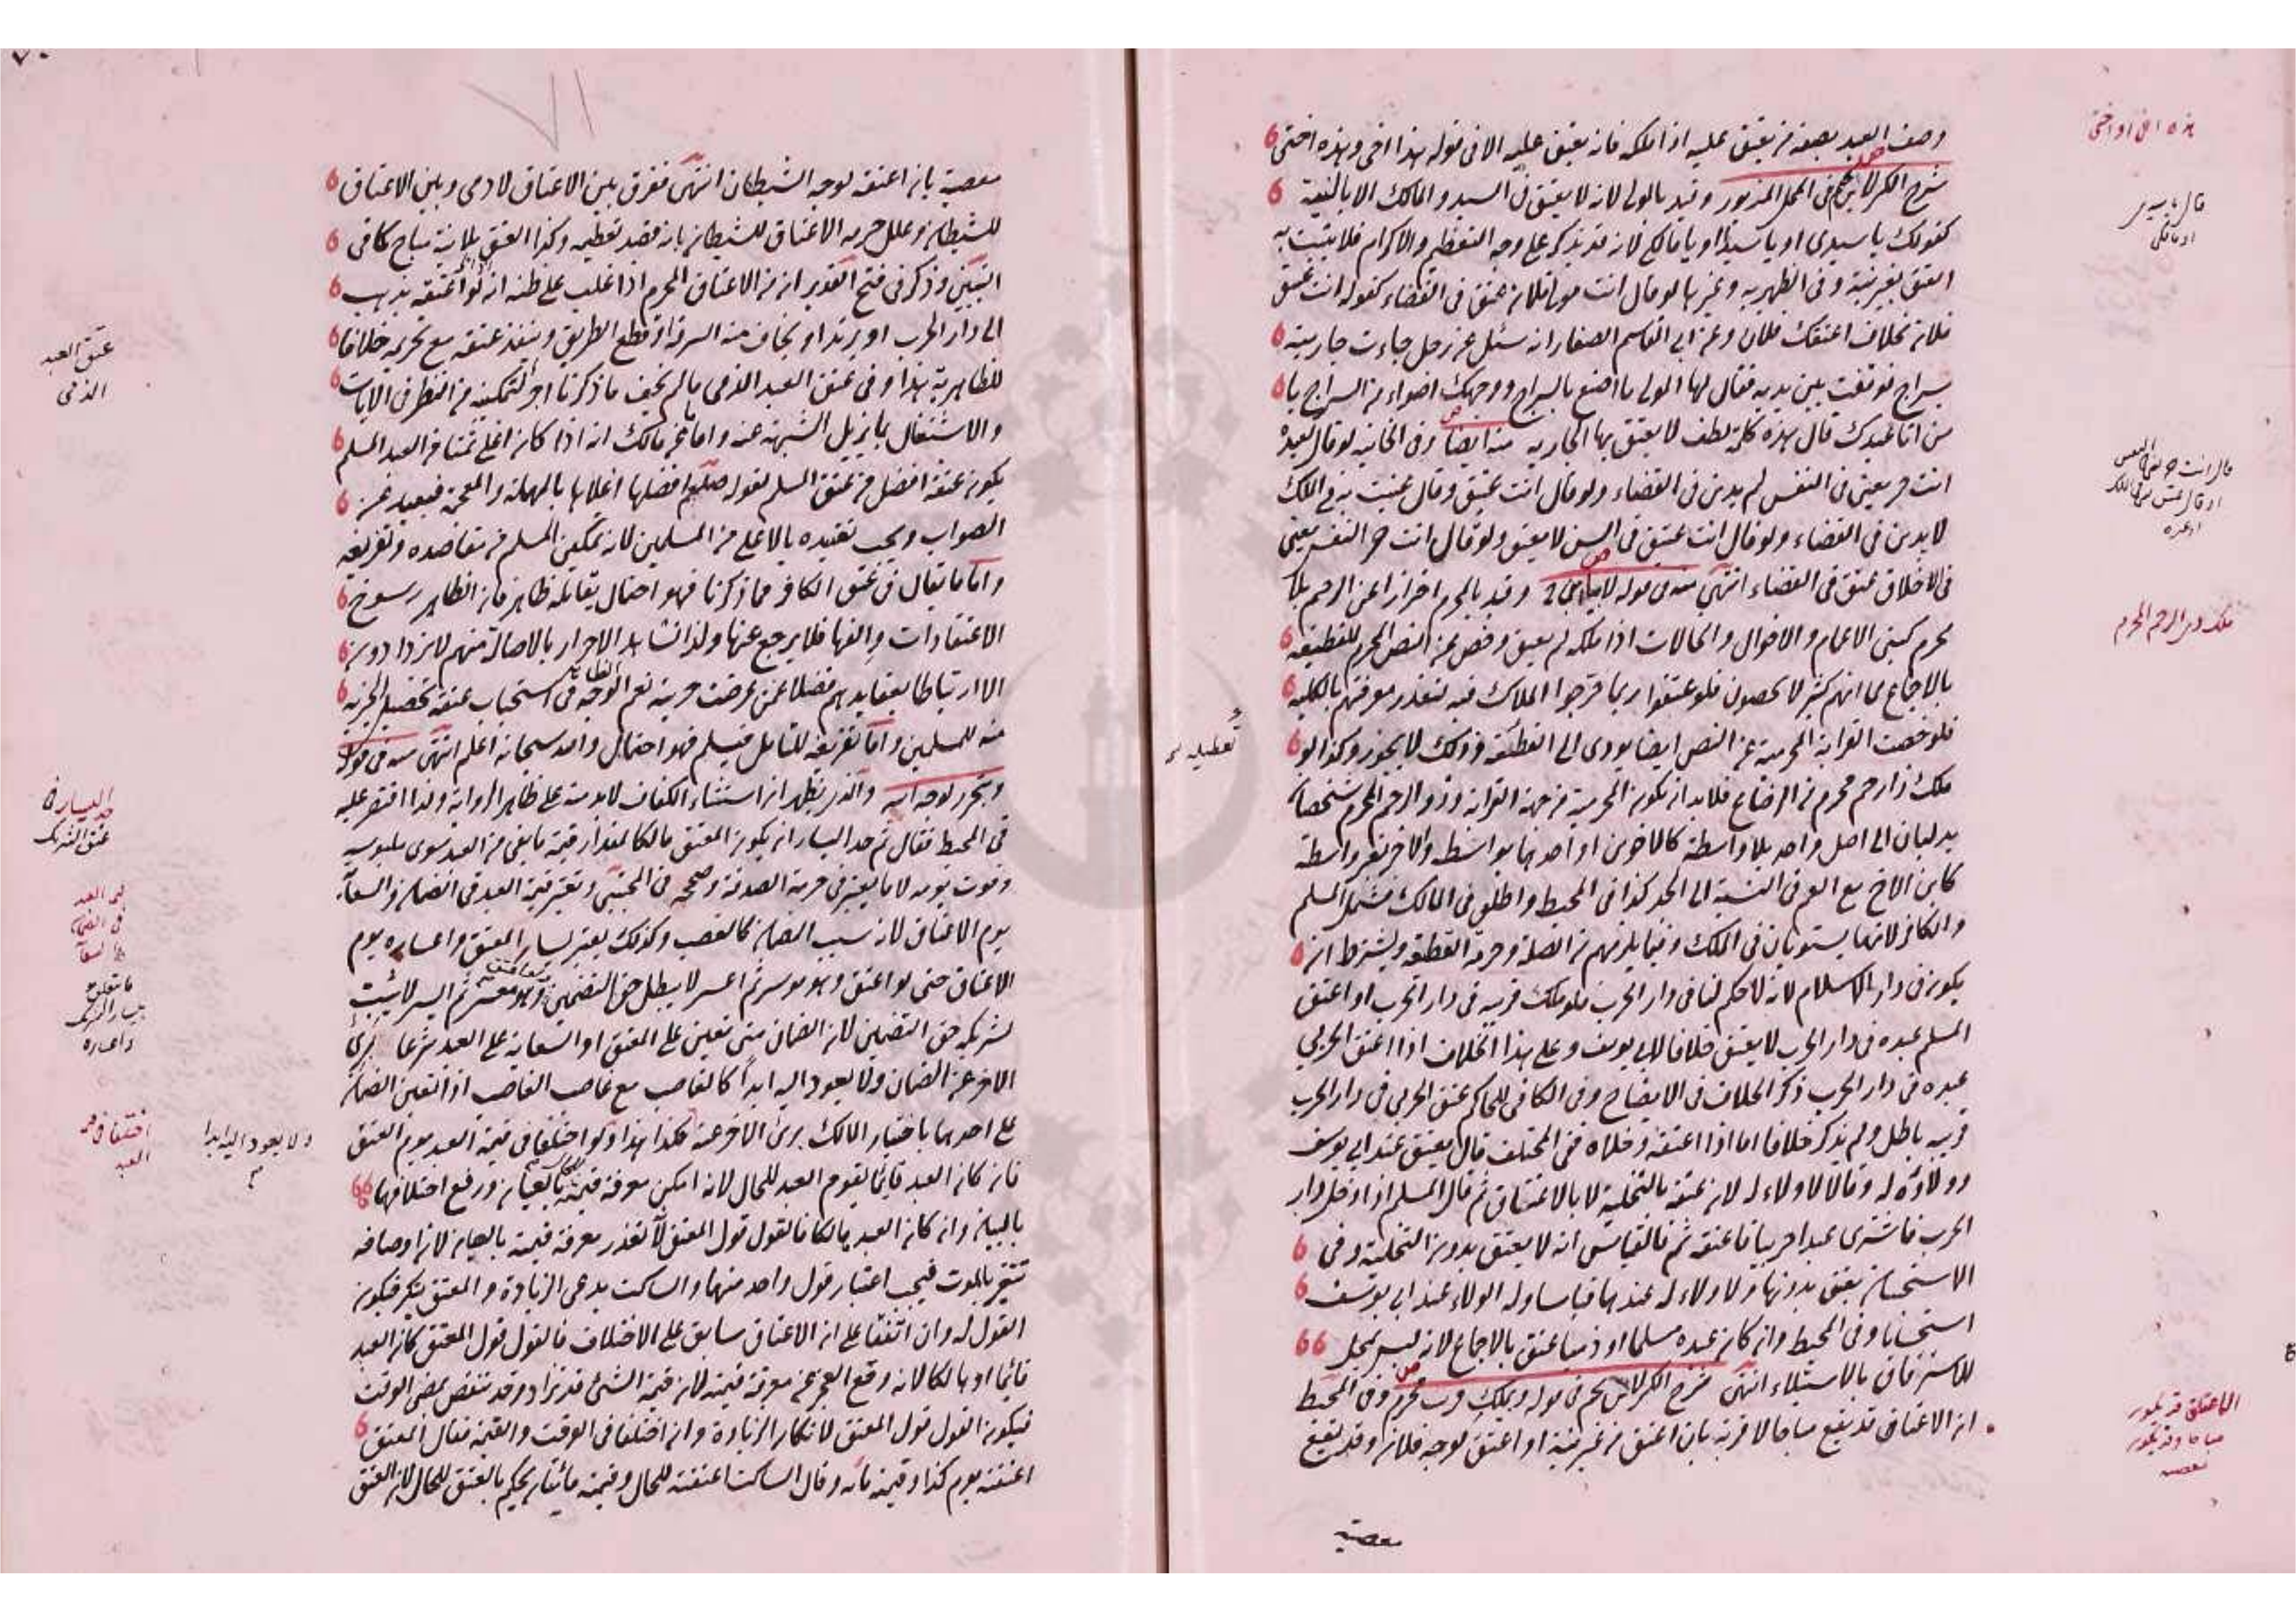 وصف العبد بصفة من يعتق عليه اذا ملكه فانه يعتق عليه الا في قوله هذا اخي وهذه اختي
شرح الكنز لابن نجيم في المحل المزبور وقيد بالمولى لانه لا يعتق في السيد والمالك الا بالنية
كقولك يا سيدي او يا سيد او يا مالكي لانه قد يذكر على وجه التعظيم والاكرام فلا يثبت به
العتق بغير نية وفي الظهيرية وغيرها لو قال انت مولى فلان عتق في القضاء كقوله انت عتيق
فلان بخلاف اعتقك فلان وعن ابي القاسم الصفار انه سئل عن رجل جاءت جاريته
بسراج فوقفت بين يديه فقال لها المولى ما اصنع بالسراج ووجهك اضواء من السراج يا
من انا عبدك قال هذه كلمة لطف لا يعتق بها الجارية منه ايضا وفي الخانية لو قال لعبده
انت حر يعني في النفس لم يدين في القضاء ولو قال انت عتيق وقال عنيت به في الملك
لا يدين في القضاء ولو قال انت عتيق في السن لا يعتق ولو قال انت حر النفس يعني
في الاخلاق عتق في القضاء انتهى منه في قوله وقيد بالمحرم احترازا عن الرحم بلا
محرم كبني الاعمام والاخوال والخالات اذا ملكه لم يعتق وخص عن النص المحرم للقطيعة
بالاجماع لما انهم كثير لا يحصون فلو عتقوا ربما حرجوا الملاك فيه لتعذر معرفتهم بالكلية
فلو خصت القرابة المحرمية عن النص ايضا يودي الى القطيعة وذلك لا يجوز وكذا لو
ملك ذا رحم محرم من الرضاع فلا بد ان يكون المحرمية من جهة القرابة وذو الرحم المحرم شخصان
يدليان الى اصل واحد بلا واسطة كالاخوين او احدهما بواسطة والاخر بغير واسطة
كابن الاخ مع العم في النسبة الى الجد كذا في المحيط واطلق في المالك فشمل المسلم
والكافر لانهما يستويان في الملك وفيما يلزمهم من الصلة وحرمة القطيعة ويشترط ان
يكون في دار الاسلام لانه لا حكم لنا في دار الحرب فلو ملك قريبه في دار الحرب او اعتق
المسلم عبده في دار الحرب لا يعتق خلافا لابي يوسف وعلى هذا الخلاف اذا اعتق الحربي
عبده في دار الحرب ذكر الخلاف في الايضاح وفي الكافي للحاكم عتق الحربي في دار الحرب
قريبه باطل ولم يذكر خلافا اما اذا اعتقه وخلاه ففي المختلف قال يعتق عند ابي يوسف
وولاؤه له وقالا لا ولاء له لان عتقه بالتخلية لا بالاعتاق ثم قال المسلم اذا دخل دار
الحرب فاشترى عبدا حربيا فاعتقه ثم فالقياس انه لا يعتق بدون التخلية وفي
الاستحسان يعتق بدونها ولا ولاء له عندهما قياسا وله الولاء عند ابي يوسف
استحسانا وفي المحيط وان كان عبده مسلما او ذميا عتق بالاجماع لانه ليس بمحل
للاسترقاق بالاستيلاء انتهى شرح الكنز لابن نجيم في قوله وبملك قريب محرم وفي المحيط
ان الاعتاق قد يقع مباحا لا قربة بان اعتق من غير نية او اعتق لوجه فلان وقد يقع
معصية
هذه اخي او اختي
قال يا سيدي
او مالكي
ملك ذي الرحم المحرم
الاعتاق قد يكون
مباحا وقد يكون
معصية
معصية بان اعتقه لوجه الشيطان انتهى ففرق بين الاعتاق لادمي وبين الاعتاق
للشيطان وعلل حرمة الاعتاق للشيطان بانه قصد تعظيمه وكذا العتق بلا نية مباح كما في
التبيين وذكر في فتح القدير ان من الاعتاق المحرم اذا غلب على ظنه انه لو اعتقه يذهب
الى دار الحرب او يرتد او يخاف منه السرقة او قطع الطريق وينفذ عتقه مع تحريمه خلافا
للظاهرية هذا وفي عتق العبد الذمي ما لم يخف ما ذكرنا اجر لتمكينه من النظر في الايات
والاشتغال بما يزيل الشبهة عنه واما ما عن مالك انه اذا كان اغلى ثمنا من العبد المسلم
يكون عتقه افضل من عتق المسلم لقوله صلعم افضلها اغلاها بالمهملة والمعجمة فبعيد عن
الصواب ويجب تقييده بالاعلى من المسلمين لانه تمكين المسلم من مقاصده وتفريغه
واما ما يقال في عتق الكافر مما ذكرنا فهو احتمال يقابله ظاهر فان الظاهر رسوخ
الاعتقادات والفها فلا يرجع عنها ولذا نشاهد الاحرار بالاصالة منهم لا يزدادون
الا ارتباطا بعقايدهم فضلا عمن عرضت حريته نعم الوجه الظاهر في استحباب عتقه تحصيل الجزية
منه للمسلمين واما تفريغه للتامل فيسلم فهو احتمال والله سبحانه اعلم انتهى منه في قوله
وبتحرير لوجه الله والذي يظهر ان استثناء الكفاف لا بد منه على ظاهر الرواية ولذا اقتصر عليه
في المحيط فقال ثم حد اليسار ان يكون المعتق مالكا لمقدار قيمة ما بقي من العبد سوى ملبوسه
وقوت يومه لا ما يعتبر في حرمة الصدقة وصححه في المجتبى وتعتبر قيمة العبد في الضمان والسعاية
يوم الاعتاق لانه سبب الضمان كالغصب وكذلك يعتبر يسار المعتق واعساره يوم
الاعتاق حتى لو اعتق وهو موسر ثم اعسر لا يبطل حق التضمين ولو اعتق وهو معسر ثم ايسر لا يثبت
لشريكه حق التضمين لان الضمان متى تعين على المعتق او السعاية على العبد شرعا برئ
الاخر عن الضمان ولا يعود اليه ابدا كالغاصب مع غاصب الغاصب اذا تعين الضمان
على احدهما باختيار المالك برئ الاخر عنه فكذا هذا ولو اختلفا في قيمة العبد يوم العتق
فان كان العبد قائما يقوم العبد للحال لانه امكن معرفة قيمته بالعيان ورفع اختلافهما
بالبيان وان كان العبد هالكا فالقول قول المعتق لانه تعذر معرفة قيمته بالعيان لان اوصافه
تتغير بالموت فيجب اعتبار قول واحد منهما والساكت يدعي الزيادة والمعتق ينكر فيكون
القول له وان اتفقا على ان الاعتاق سابق على الاختلاف فالقول قول المعتق كان العبد
قائما او هالكا لانه وقع العجز عن معرفة قيمته لان قيمة الشيء قد تزداد وقد تنتقص بمضي الوقت
فيكون القول قول المعتق لانكار الزيادة وان اختلفا في الوقت والقيمة فقال المعتق
اعتقته يوم كذا وقيمته مائة وقال الساكت اعتقته للحال وقيمته مائتان يحكم بالعتق للحال لان العتق
عتق العبد
الذمي
حد اليسار في
عتق المشترك
ولا يعود اليه ابدا
اختلفا في قيمة
العبد
٧٠
٧١